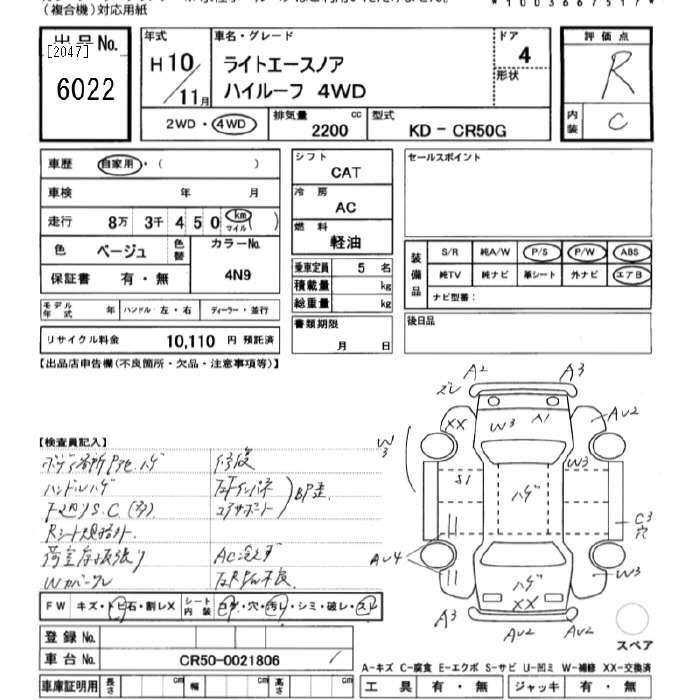 (複合機)対応用紙
*1003667517*
出品No.
[2047]
6022
年式
H10/11月
車名・グレード
ライトエースノア
ハイルーフ 4WD
ドア
4
形状
評価点
R
内装
C
2WD・4WD
排気量
2200
cc
型式
KD-CR50G
車歴 自家用・( )
車検 年 月
走行 8万 3千 4 5 0 km マイル
色 ベージュ
色替
カラーNo.
4N9
保証書 有・無
モデル年式 年 ハンドル 左・右 ディーラー・並行
リサイクル料金 10,110 円 預託済
シフト
CAT
冷房
AC
燃料
軽油
乗車定員 5 名
積載量 kg
総重量 kg
書類期限
月 日
セールスポイント
装備品
S/R 純A/W P/S P/W ABS
純TV 純ナビ 革シート 外ナビ エアB
ナビ型番:
後日品
【出品店申告欄(不良箇所・欠品・注意事項等)】
【検査員記入】
ハンドルハゲ
修復
AC冷えず
FW キズ・トビ石・割レX
シート内装 コゲ・穴・汚レ・シミ・破レ・スレ
登録No.
車台No. CR50-0021806
車庫証明用 長さ cm 幅 cm 高さ cm
ズレ
A2
A3
XX
W3
A1
AU2
W3
W3
S1
ハゲ
C3
穴
AU4
W3
ハゲ
XX
A3
AU2
AU2
スペア
A-キズ C-腐食 E-エクボ S-サビ U-凹ミ W-補修 XX-交換済
工具 有・無 ジャッキ 有・無